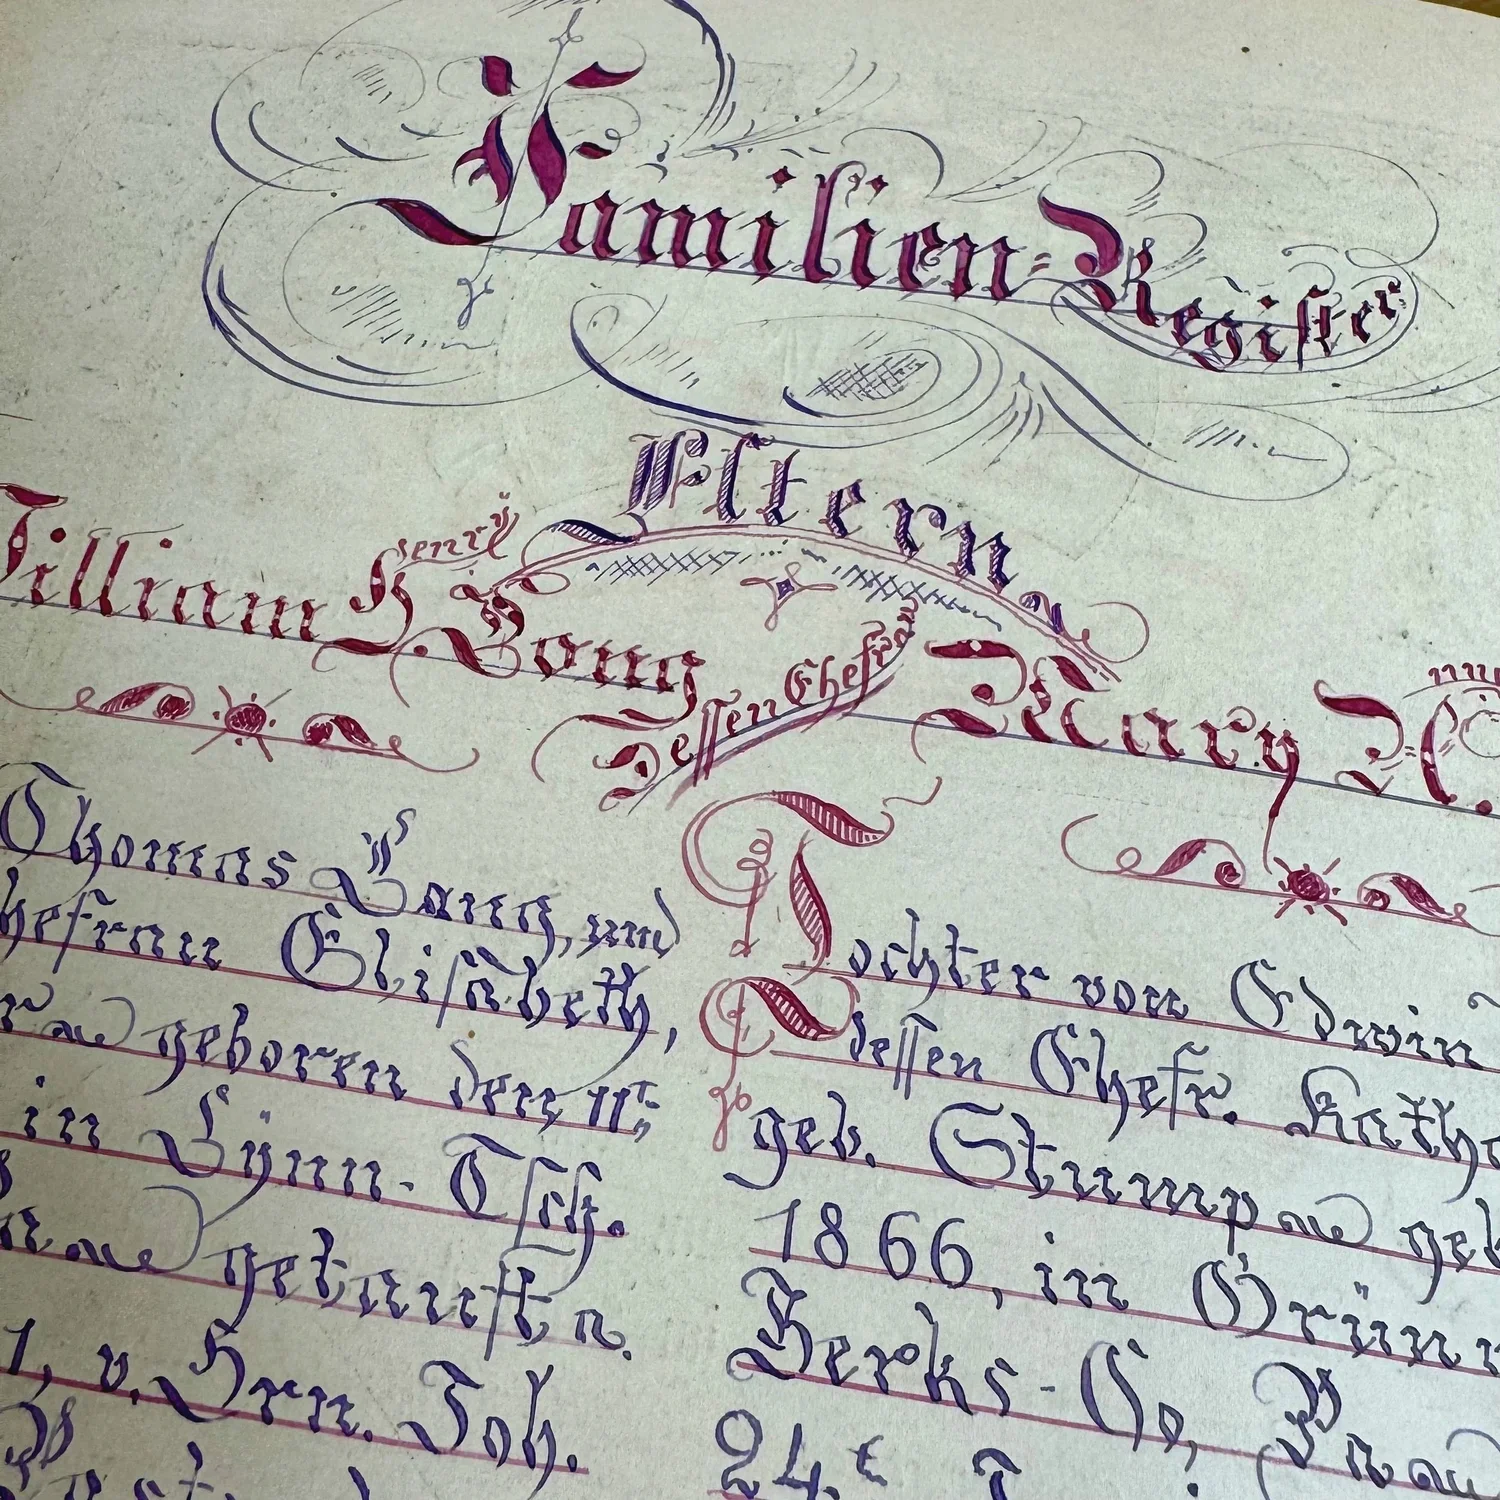 Familien=Register
Eltern
William H. Long
Henry
Dessen Ehefr.
Mary
Thomas Lang, und
hefrau Elisabeth,
ra geboren den 11t
in Lÿnn-Tsch.
na getauft a.
1, v. Hrn. Joh.
Tochter von Edwin
Dessen Ehefr. Kath
geb. Stump geb
1866, in Grünn
Berks-Co, Pa
24.t